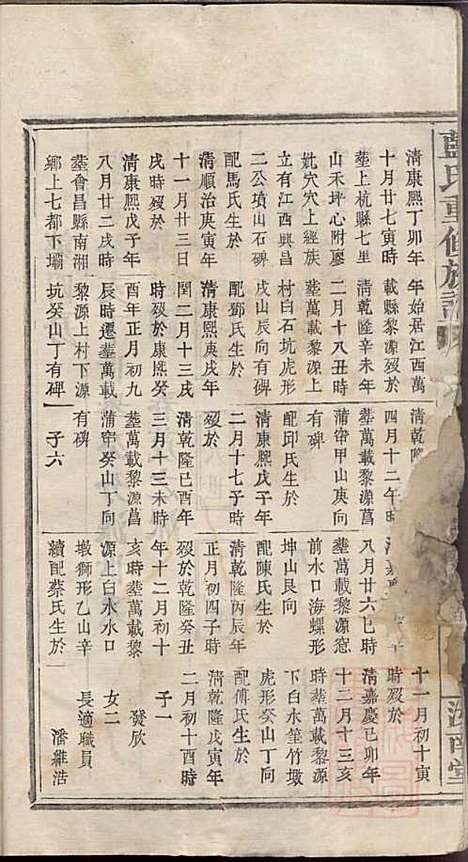 藍氏重修族譜
汝南堂
清康熙丁卯年
十月廿七寅時
塟上杭縣七里
山禾坪心附廖
妣穴穴上經族
立有江西興昌
二公墳山石碑
配馬氏生於
清順治庚寅年
十一月廿三日
戌時歿於
清康熙戊子年
八月廿二戌時
塟會昌縣南湘
鄉上七都下壩
年始居江西萬
載縣黎源歿於
清乾隆辛未年
二月十八丑時
塟萬載黎源上
村白石坑虎形
戌山辰向有碑
配鄧氏生於
清康熙庚戌年
閏二月十三戌
時歿於康熙癸
酉年正月初九
辰時遷塟萬載
黎源上村下源
坑癸山丁有碑
清乾隆
四月十二午時
塟萬載黎源菖
蒲帘甲山庚向
有碑
配邱氏生於
清康熙戊子年
二月十七子時
歿於
清乾隆己酉年
三月十三未時
塟萬載黎源菖
蒲帘癸山丁向
有碑
子六
清
八月廿六巳時
塟萬載黎源窓
前水口海螺形
坤山艮向
配陳氏生於
清乾隆丙辰年
正月初四子時
歿於乾隆癸丑
年十二月初十
亥時塟萬載黎
源上白水水口
墩獅形乙山辛
續配蔡氏生於
十一月初十寅
時歿於
清嘉慶己卯年
十二月十三亥
時塟萬載黎源
下白水篁竹墩
虎形癸山丁向
配傅氏生於
清乾隆戊寅年
二月初十酉時
子一
發欣
女二
長適職員
潘維浩